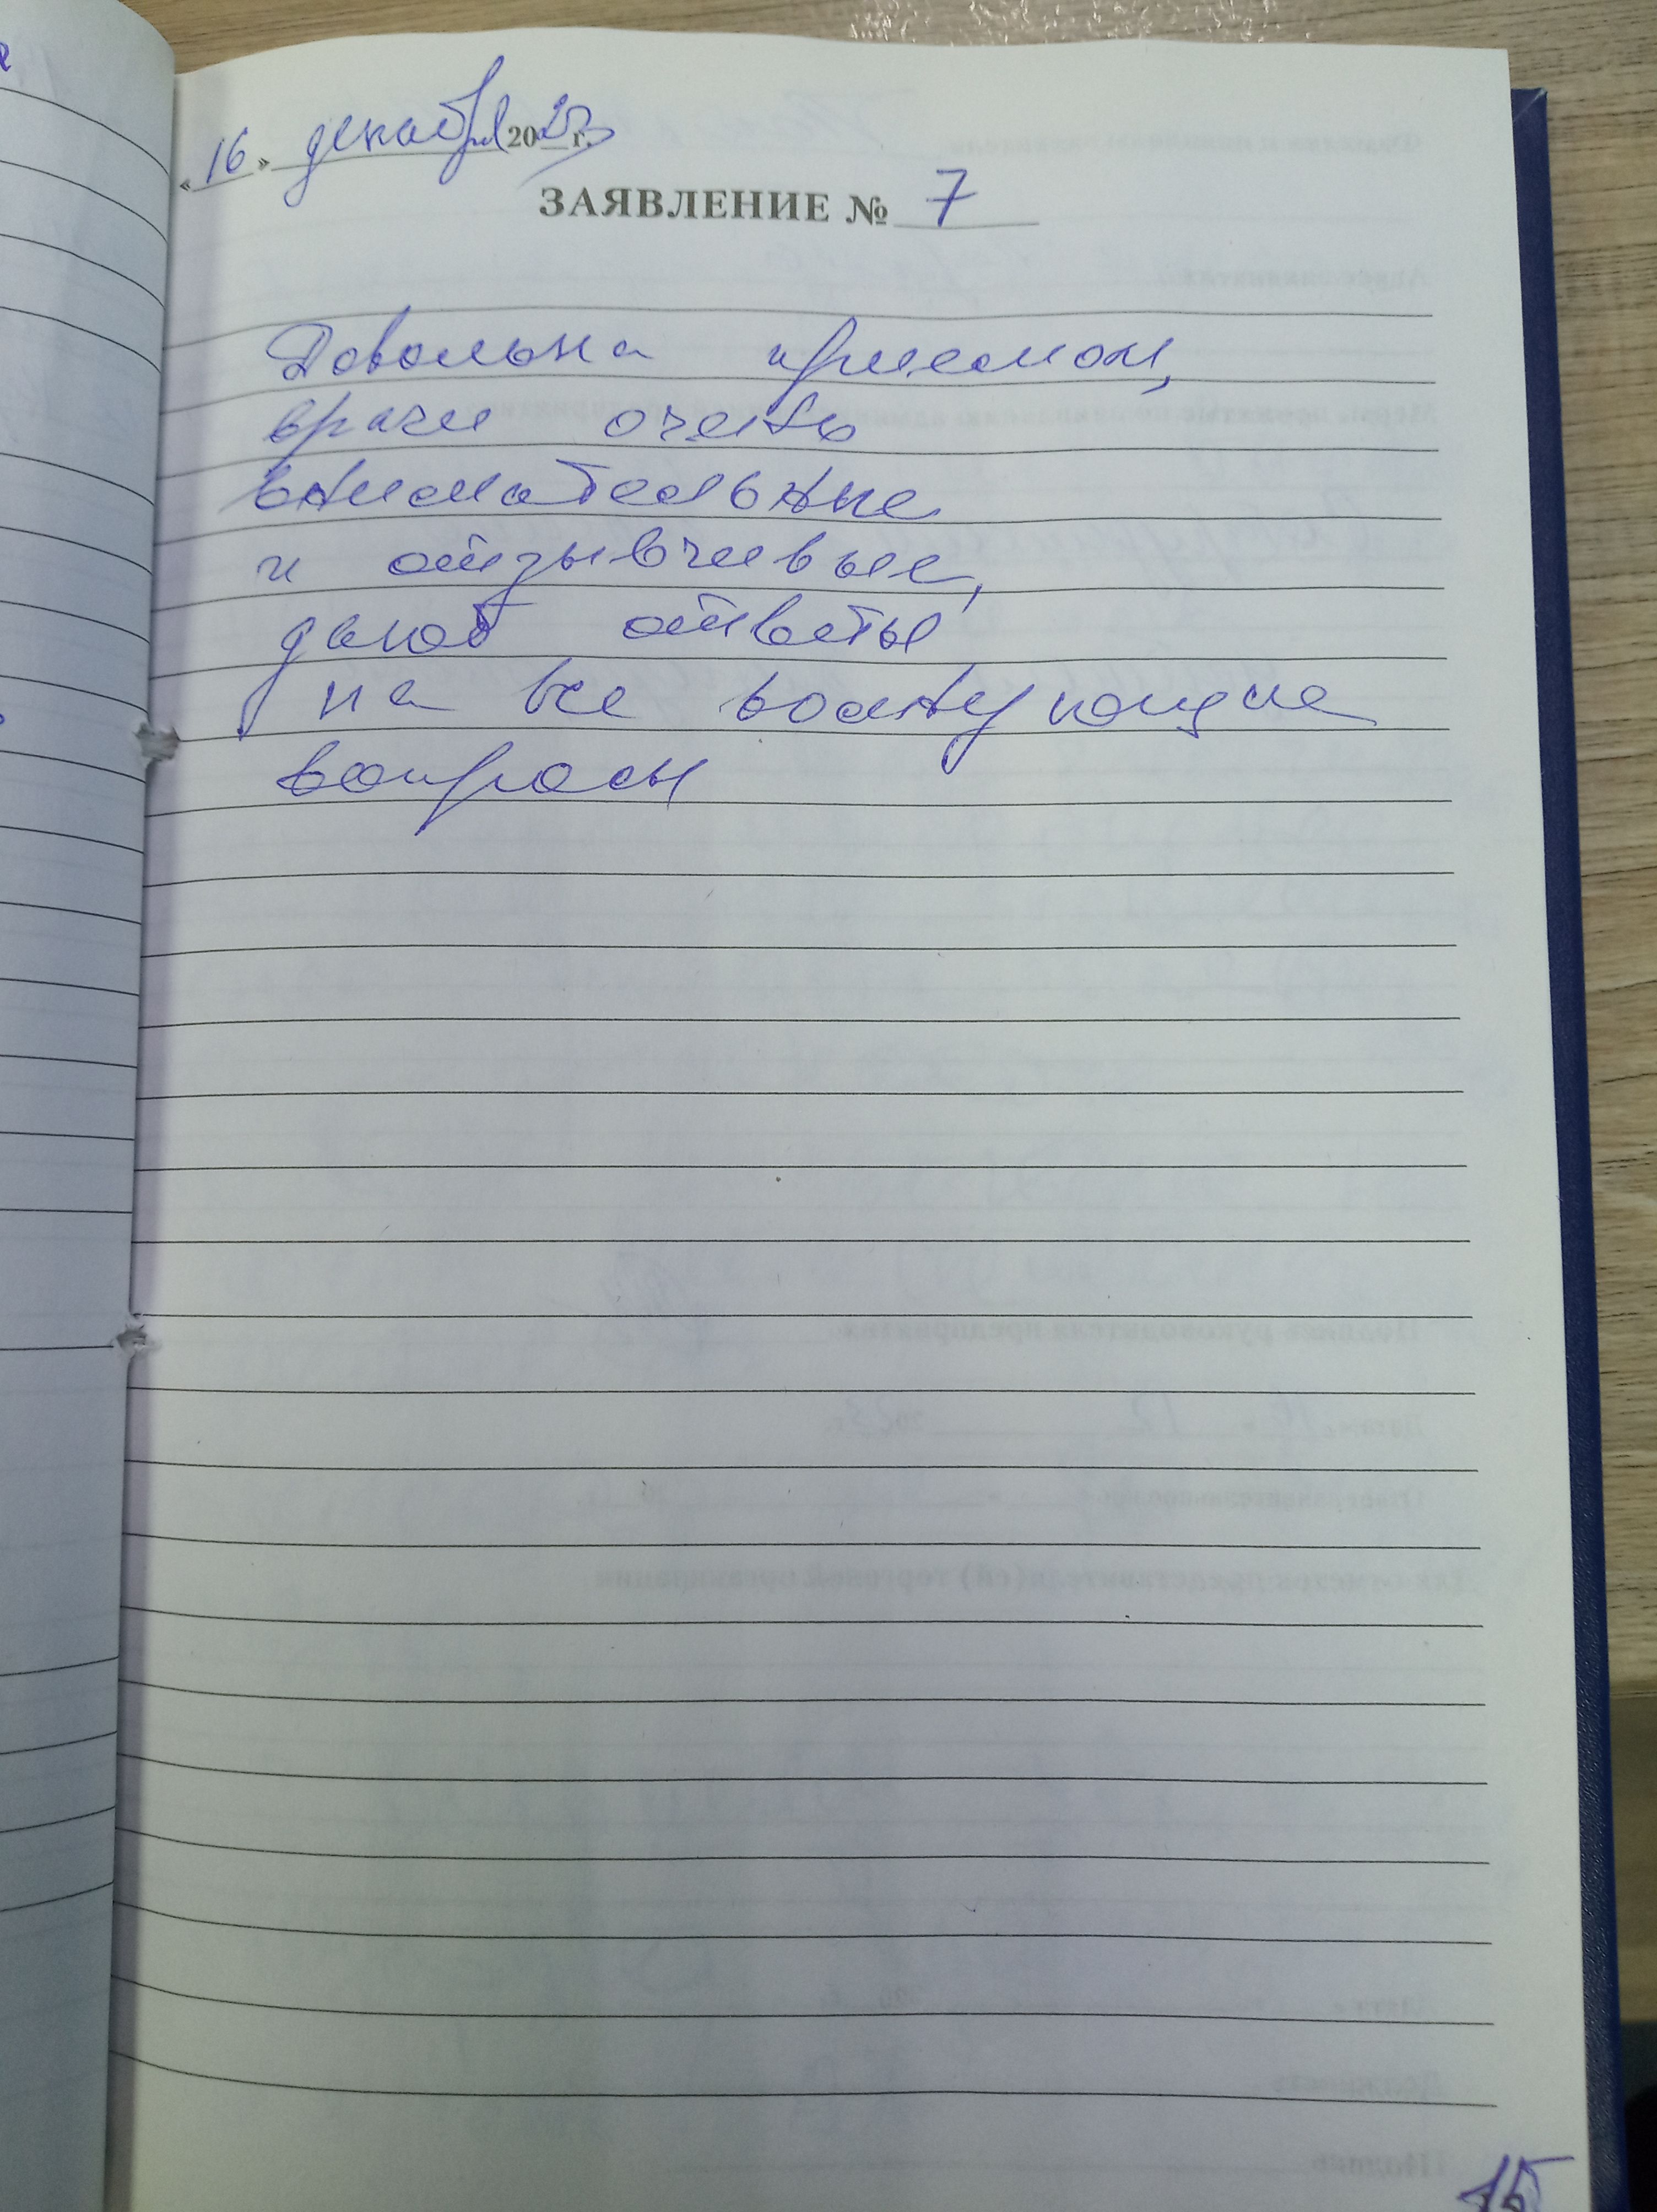 « 16 » декабря 2023 г.
ЗАЯВЛЕНИЕ № 7
Довольна приемом,
врачи очень
внимательные
и отзывчивые,
дают ответы
на все волнующие
вопросы
15